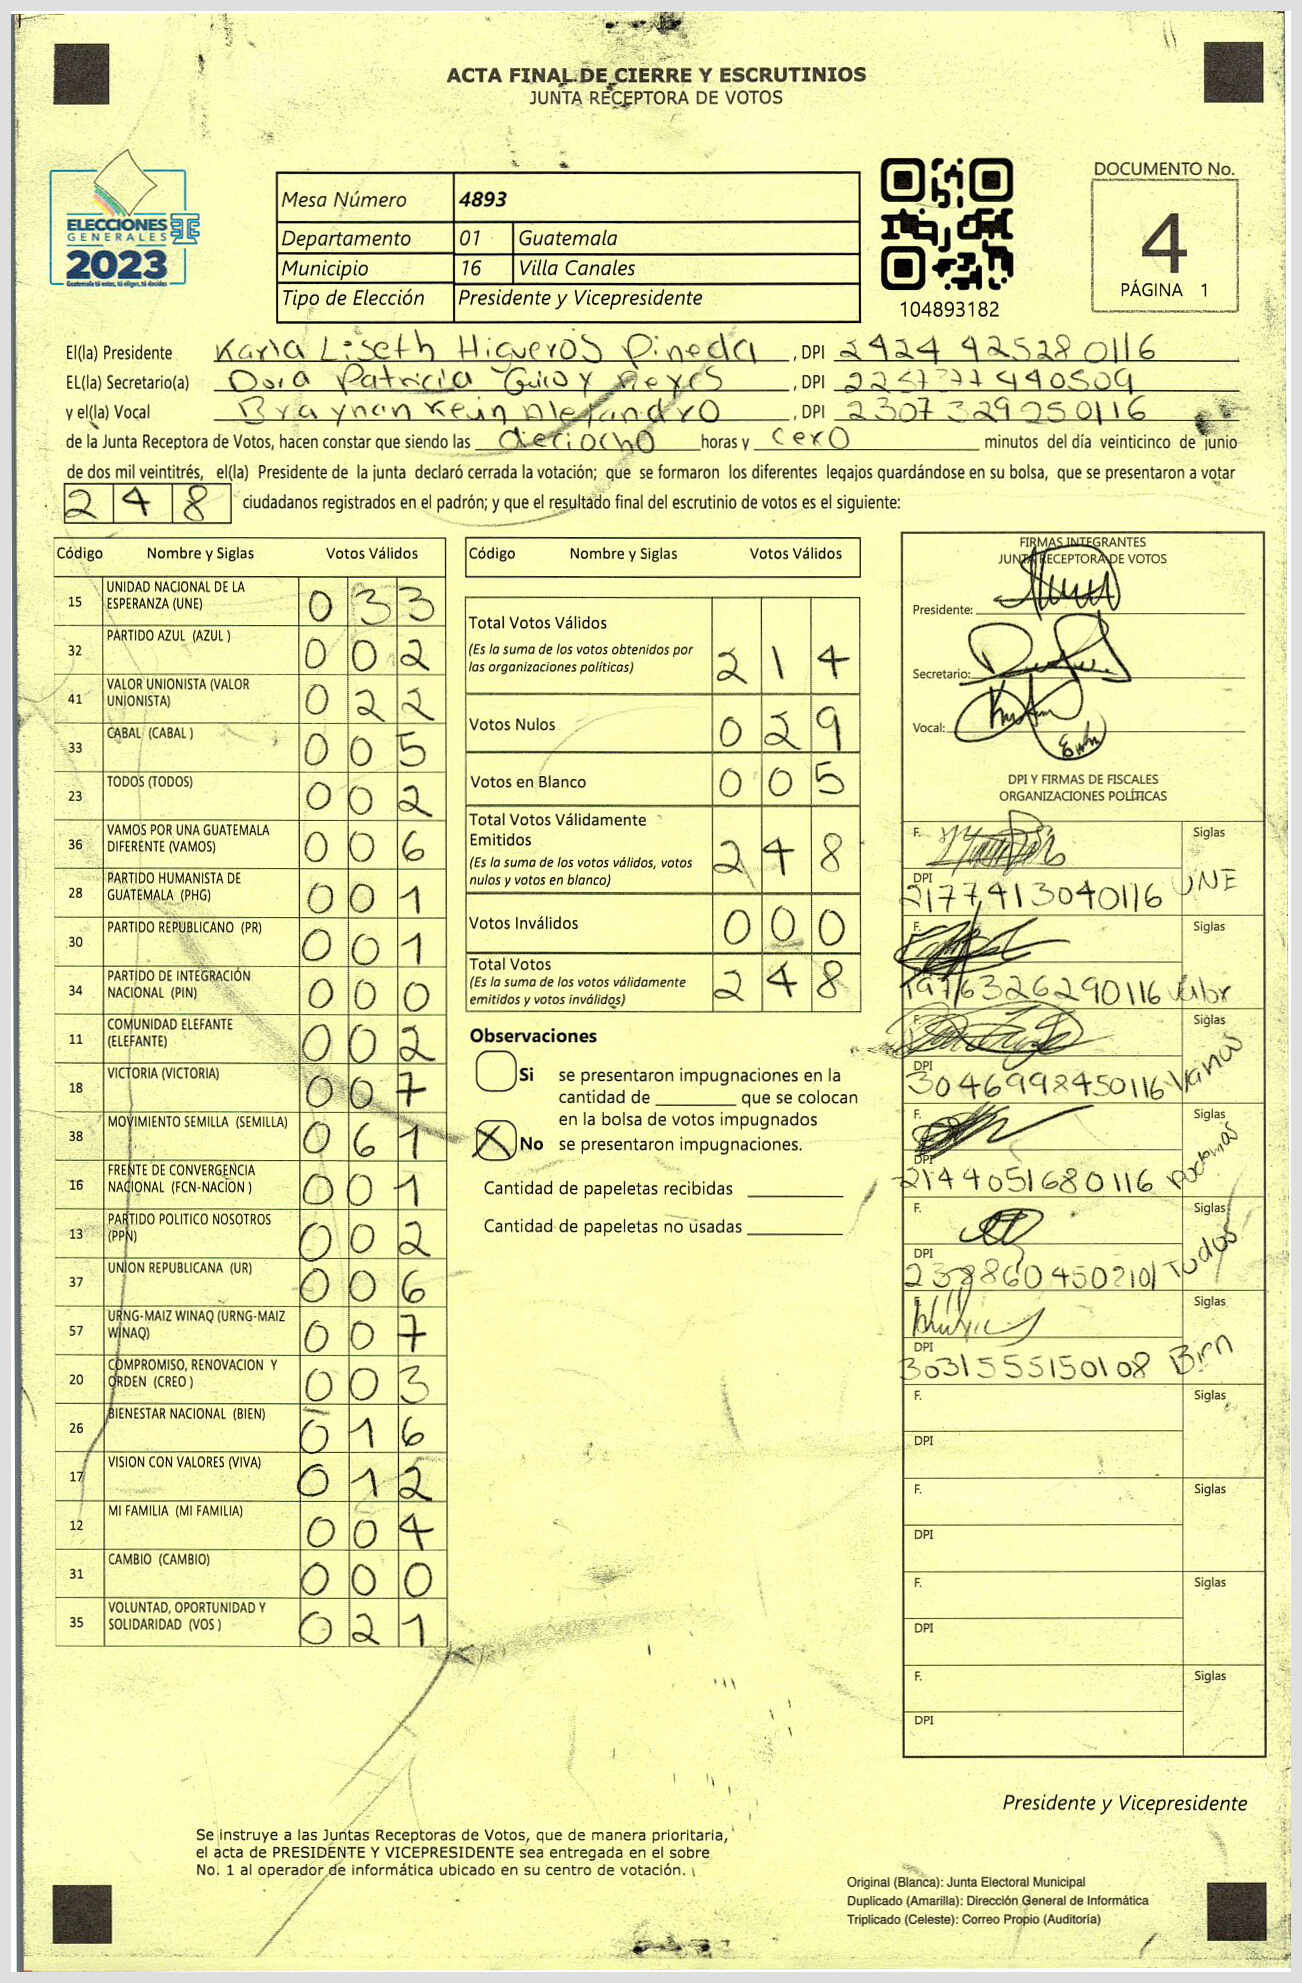 ACTA FINAL DE CIERRE Y ESCRUTINIOS
JUNTA RECEPTORA DE VOTOS
ELECCIONES
GENERALES
2023
Guatemala tú votas, tú eliges, tú decides
Mesa Número 4893
Departamento 01 Guatemala
Municipio 16 Villa Canales
Tipo de Elección Presidente y Vicepresidente
104893182
DOCUMENTO No.
4
PÁGINA 1
El(la) Presidente Karla Liseth Higueros Pineda , DPI 2424 42528 0116
EL(la) Secretario(a) Dora Patricia Reyes , DPI
y el(la) Vocal Braynan , DPI 2307 329250116
de la Junta Receptora de Votos, hacen constar que siendo las dieciocho horas y cero minutos del día veinticinco de junio
de dos mil veintitrés, el(la) Presidente de la junta declaró cerrada la votación; que se formaron los diferentes legajos guardándose en su bolsa, que se presentaron a votar
248 ciudadanos registrados en el padrón; y que el resultado final del escrutinio de votos es el siguiente:
Código Nombre y Siglas Votos Válidos
15 UNIDAD NACIONAL DE LA ESPERANZA (UNE) 033
32 PARTIDO AZUL (AZUL ) 002
41 VALOR UNIONISTA (VALOR UNIONISTA) 022
33 CABAL (CABAL ) 005
23 TODOS (TODOS) 002
36 VAMOS POR UNA GUATEMALA DIFERENTE (VAMOS) 006
28 PARTIDO HUMANISTA DE GUATEMALA (PHG) 001
30 PARTIDO REPUBLICANO (PR) 001
34 PARTIDO DE INTEGRACIÓN NACIONAL (PIN) 000
11 COMUNIDAD ELEFANTE (ELEFANTE) 002
18 VICTORIA (VICTORIA) 007
38 MOVIMIENTO SEMILLA (SEMILLA) 061
16 FRENTE DE CONVERGENCIA NACIONAL (FCN-NACION ) 001
13 PARTIDO POLITICO NOSOTROS (PPN) 002
37 UNION REPUBLICANA (UR) 006
57 URNG-MAIZ WINAQ (URNG-MAIZ WINAQ) 007
20 COMPROMISO, RENOVACION Y ORDEN (CREO ) 003
26 BIENESTAR NACIONAL (BIEN) 016
17 VISION CON VALORES (VIVA) 012
12 MI FAMILIA (MI FAMILIA) 004
31 CAMBIO (CAMBIO) 000
35 VOLUNTAD, OPORTUNIDAD Y SOLIDARIDAD (VOS ) 021
Código Nombre y Siglas Votos Válidos
Total Votos Válidos 214
(Es la suma de los votos obtenidos por
las organizaciones políticas)
Votos Nulos 029
Votos en Blanco 005
Total Votos Válidamente
Emitidos 248
(Es la suma de los votos válidos, votos
nulos y votos en blanco)
Votos Inválidos 000
Total Votos 248
(Es la suma de los votos válidamente
emitidos y votos inválidos)
Observaciones
Si se presentaron impugnaciones en la
cantidad de ________ que se colocan
en la bolsa de votos impugnados
X No se presentaron impugnaciones.
Cantidad de papeletas recibidas
Cantidad de papeletas no usadas
FIRMAS INTEGRANTES
JUNTA RECEPTORA DE VOTOS
Presidente:
Secretario:
Vocal:
DPI Y FIRMAS DE FISCALES
ORGANIZACIONES POLÍTICAS
F. Siglas
DPI 2177413040116 UNE
F. Siglas
DPI 1976326290116 Valor
F. Siglas
DPI 3046998450116 Vamos
F. Siglas
DPI 2144051680116
F. Siglas
DPI Todos
F. Siglas
DPI 3031555150108 Bien
F. Siglas
DPI
F. Siglas
DPI
F. Siglas
DPI
F. Siglas
DPI
Presidente y Vicepresidente
Se instruye a las Juntas Receptoras de Votos, que de manera prioritaria,
el acta de PRESIDENTE Y VICEPRESIDENTE sea entregada en el sobre
No. 1 al operador de informática ubicado en su centro de votación.
Original (Blanca): Junta Electoral Municipal
Duplicado (Amarilla): Dirección General de Informática
Triplicado (Celeste): Correo Propio (Auditoría)